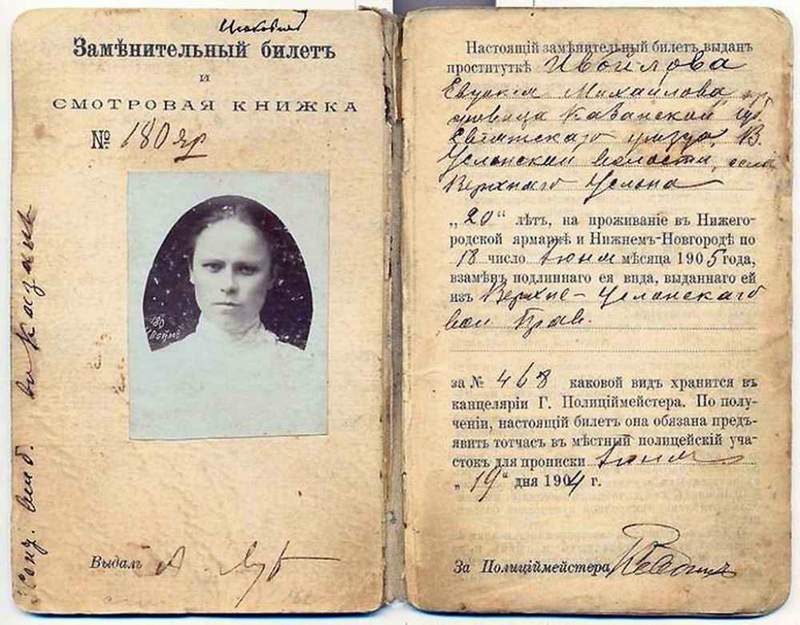 Замѣнительный билетъ
и
СМОТРОВАЯ КНИЖКА
№ 180 яр
Выдалъ
въ Казань
Настоящій замѣнительный билетъ выданъ
проституткѣ Ивойлова
Михайлова
Казанской
уѣзда, В.
Услонской волости, села
Верхняго Услона
„20“ лѣтъ, на проживаніе въ Нижего-
родской ярмаркѣ и Нижнемъ-Новгородѣ по
18 число Іюня мѣсяца 1905 года,
взамѣнъ подлиннаго ея вида, выданнаго ей
изъ Верхне-Услонскаго
вол. Прав.
за № 468 каковой видъ хранится въ
канцеляріи Г. Полиціймейстера. По полу-
ченіи, настоящій билетъ она обязана предъ-
явить тотчасъ въ мѣстный полицейскій уча-
стокъ для прописки Іюня
„19“ дня 1904 г.
За Полиціймейстера